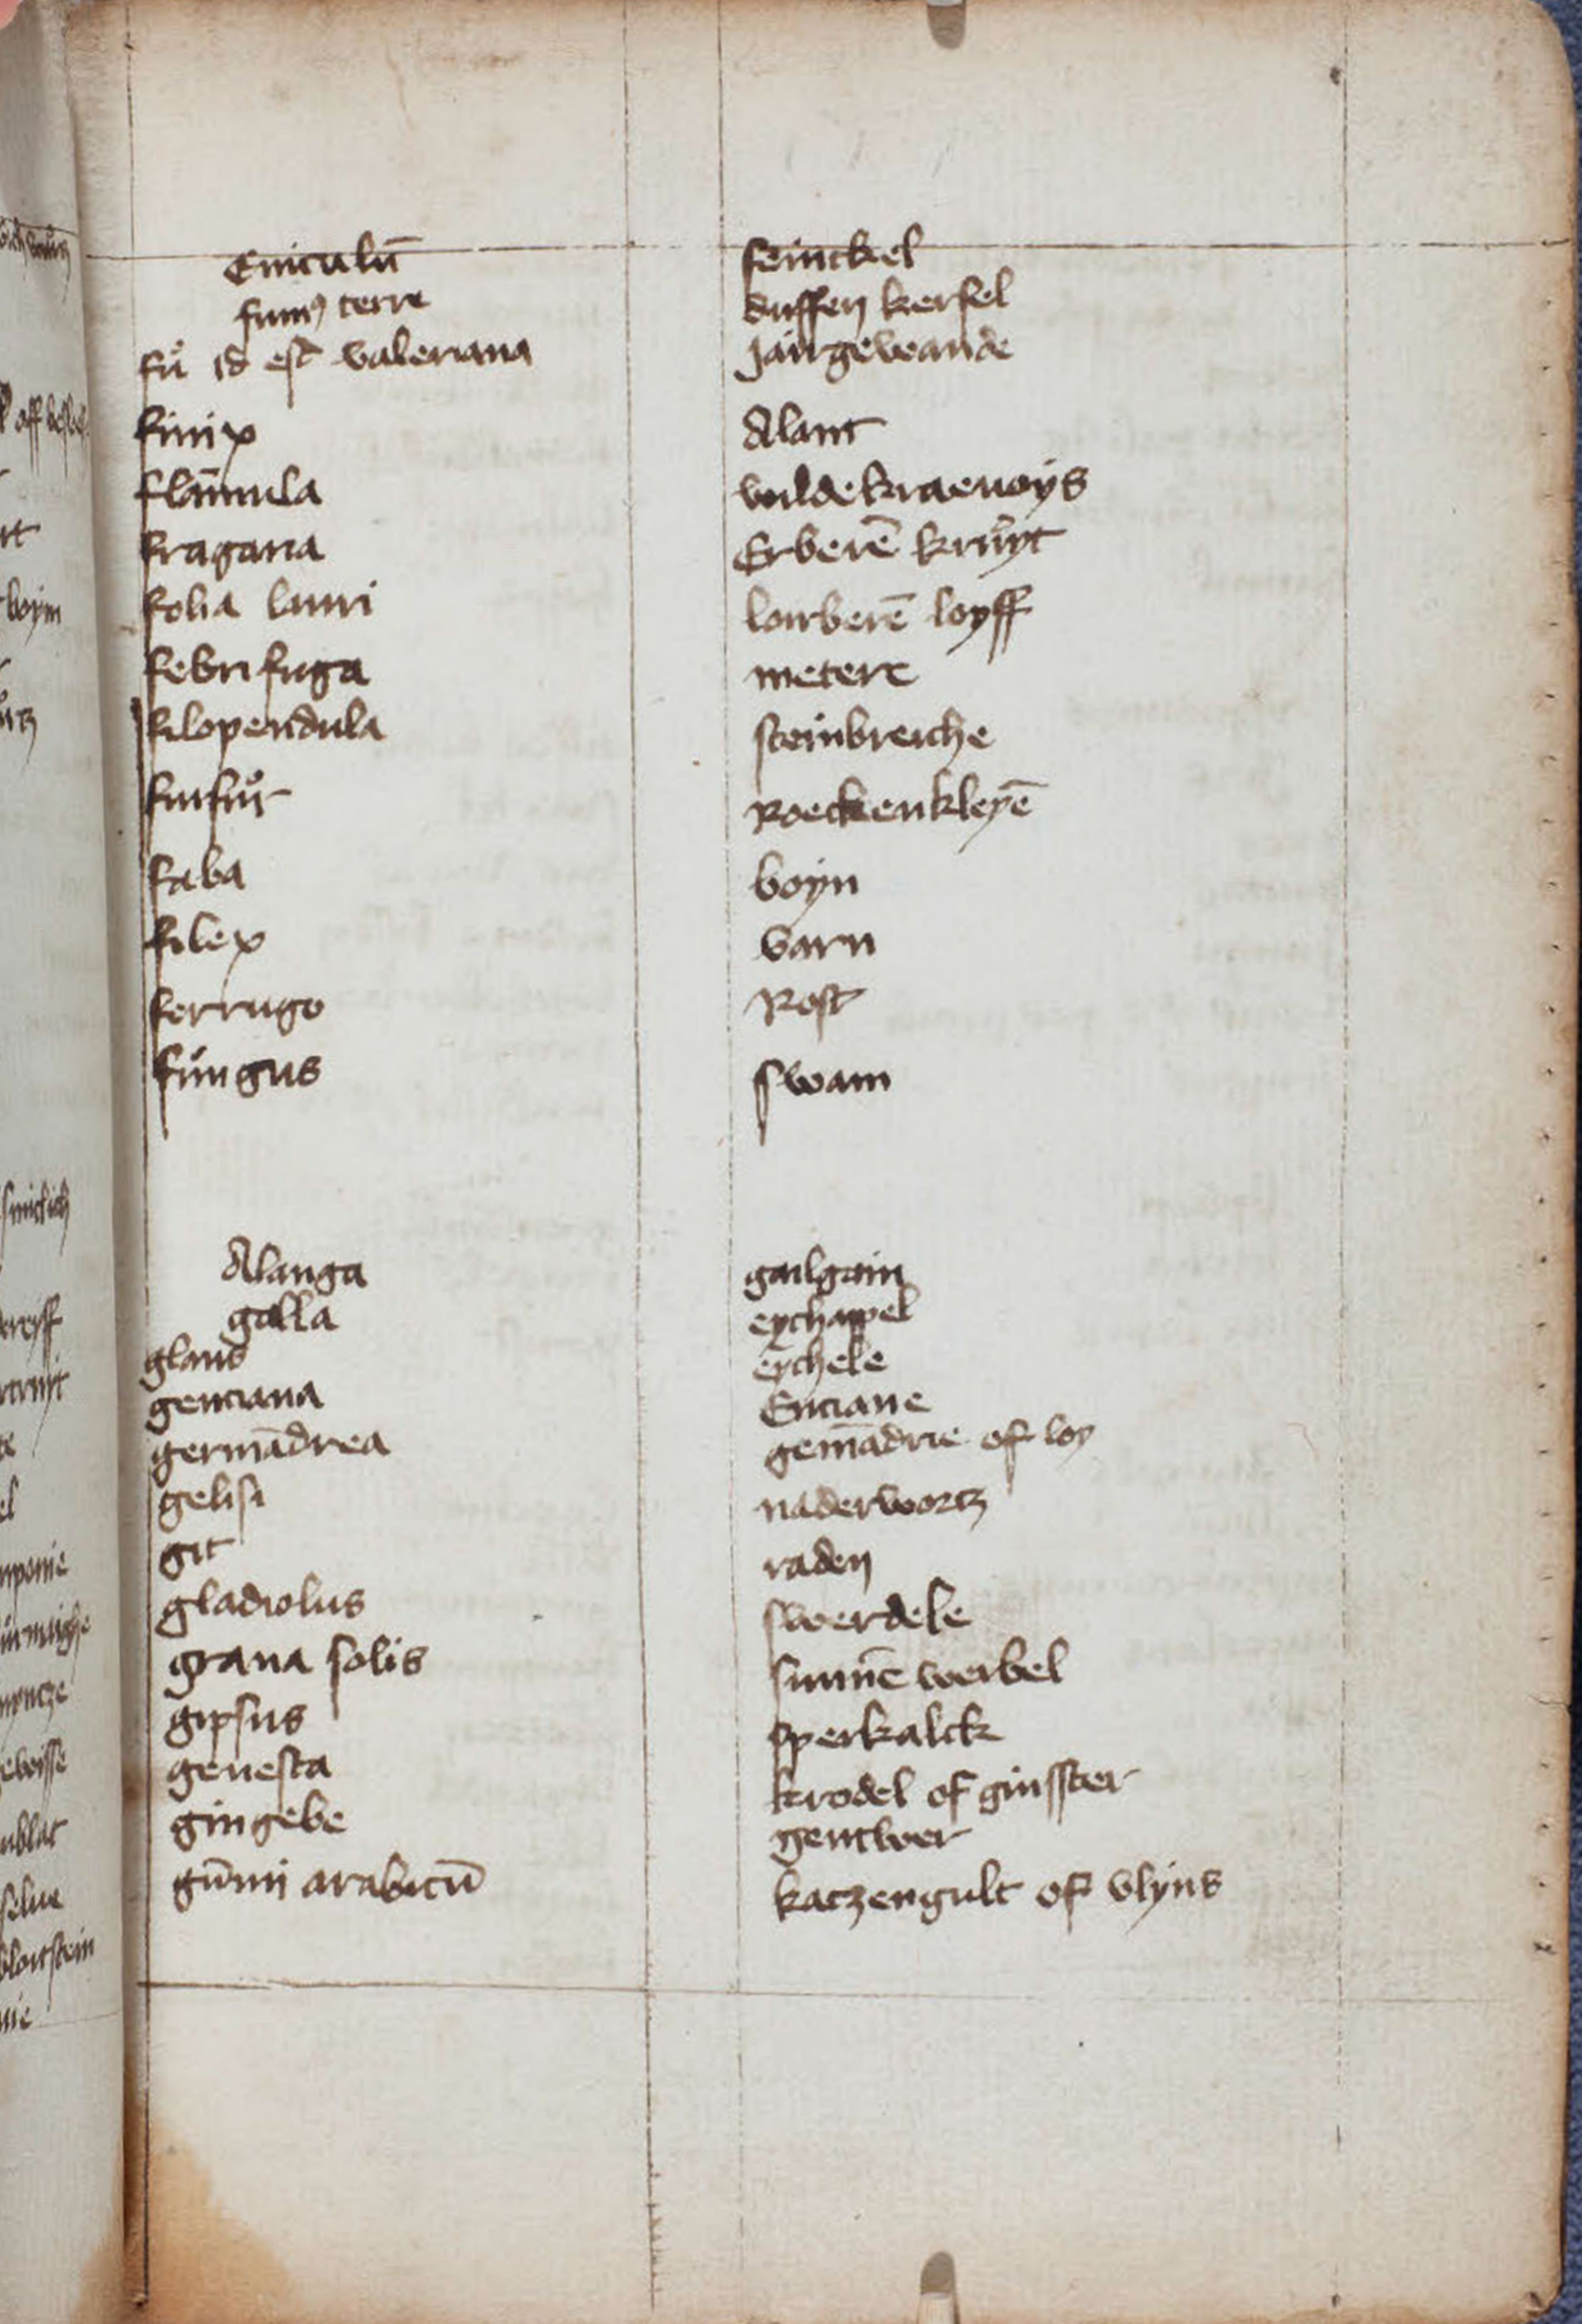 Eniculū feinckel
fumꝰ terre duffen kersel
fu̇ id est valeriana Jairgewande
finix Alant
flām̄ula wildekraenoys
fragaria Erberē kruyt
folia lauri loirberē loyff
febrifuga metere
filopendula steinbreiche
furfur Roeckenkleyē
faba boyn
filex varn
ferrugo Rost
fungus swam
Alanga gailgain
galla eychappel
glans eychele
genciana Enciane
germādrea gemādrie of loy
gelisi naderwortz
git raden
gladiolus swerdele
grana solis sunnē werbel
gipsus sperkalck
genesta krodel of ginsster
gingebe gentwer
gūmi arabicū katzengult of vlyns